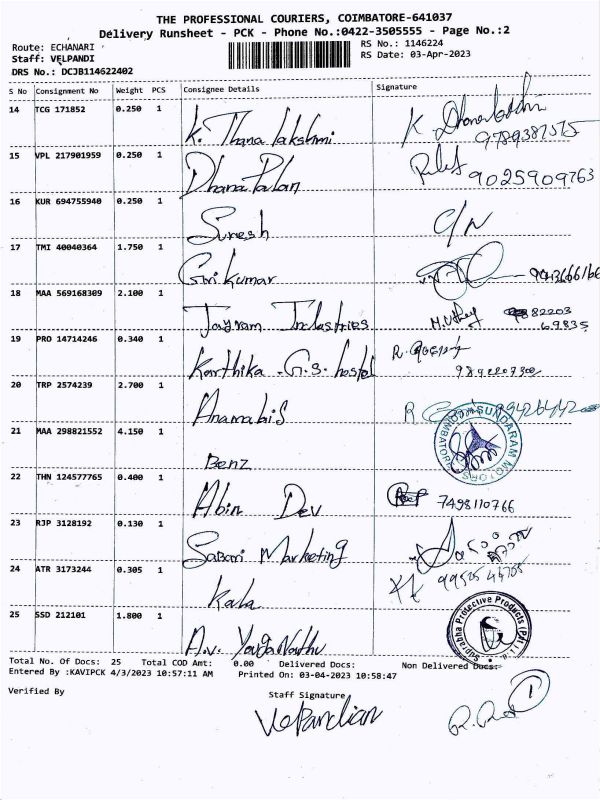 THE PROFESSIONAL COURIERS, COIMBATORE-641037
Delivery Runsheet - PCK - Phone No.:0422-3505555 - Page No.:2
Route: ECHANARI RS No.: 1146224
Staff: VELPANDI RS Date: 03-Apr-2023
DRS No.: DCJB114622402
S No Consignment No Weight PCS Consignee Details Signature
14 TCG 171852 0.250 1
K. Thana lakshmi K
15 VPL 217901959 0.250 1
Dhana Palan 9025909763
16 KUR 694755940 0.250 1
Suresh C/N
17 TMI 40040364 1.750 1
Giri kumar
18 MAA 569168309 2.100 1
Jayram Industries 82203
69835
19 PRO 14714246 0.340 1 R.
Karthika .G.S. hostel
20 TRP 2574239 2.700 1
R
SUNDARAM MOTORS
21 MAA 298821552 4.150 1
Benz
22 THN 124577765 0.400 1
Abin Dev 7498110766
23 RJP 3128192 0.130 1
Sabari Marketing
24 ATR 3173244 0.305 1
Kala
25 SSD 212101 1.800 1
Suprabha Protective Products (P) Ltd
A.V.
Total No. Of Docs: 25 Total COD Amt: 0.00 Delivered Docs: Non Delivered Docs:
Entered By :KAVIPCK 4/3/2023 10:57:11 AM Printed On: 03-04-2023 10:58:47
Verified By Staff Signature
VelPandian 1